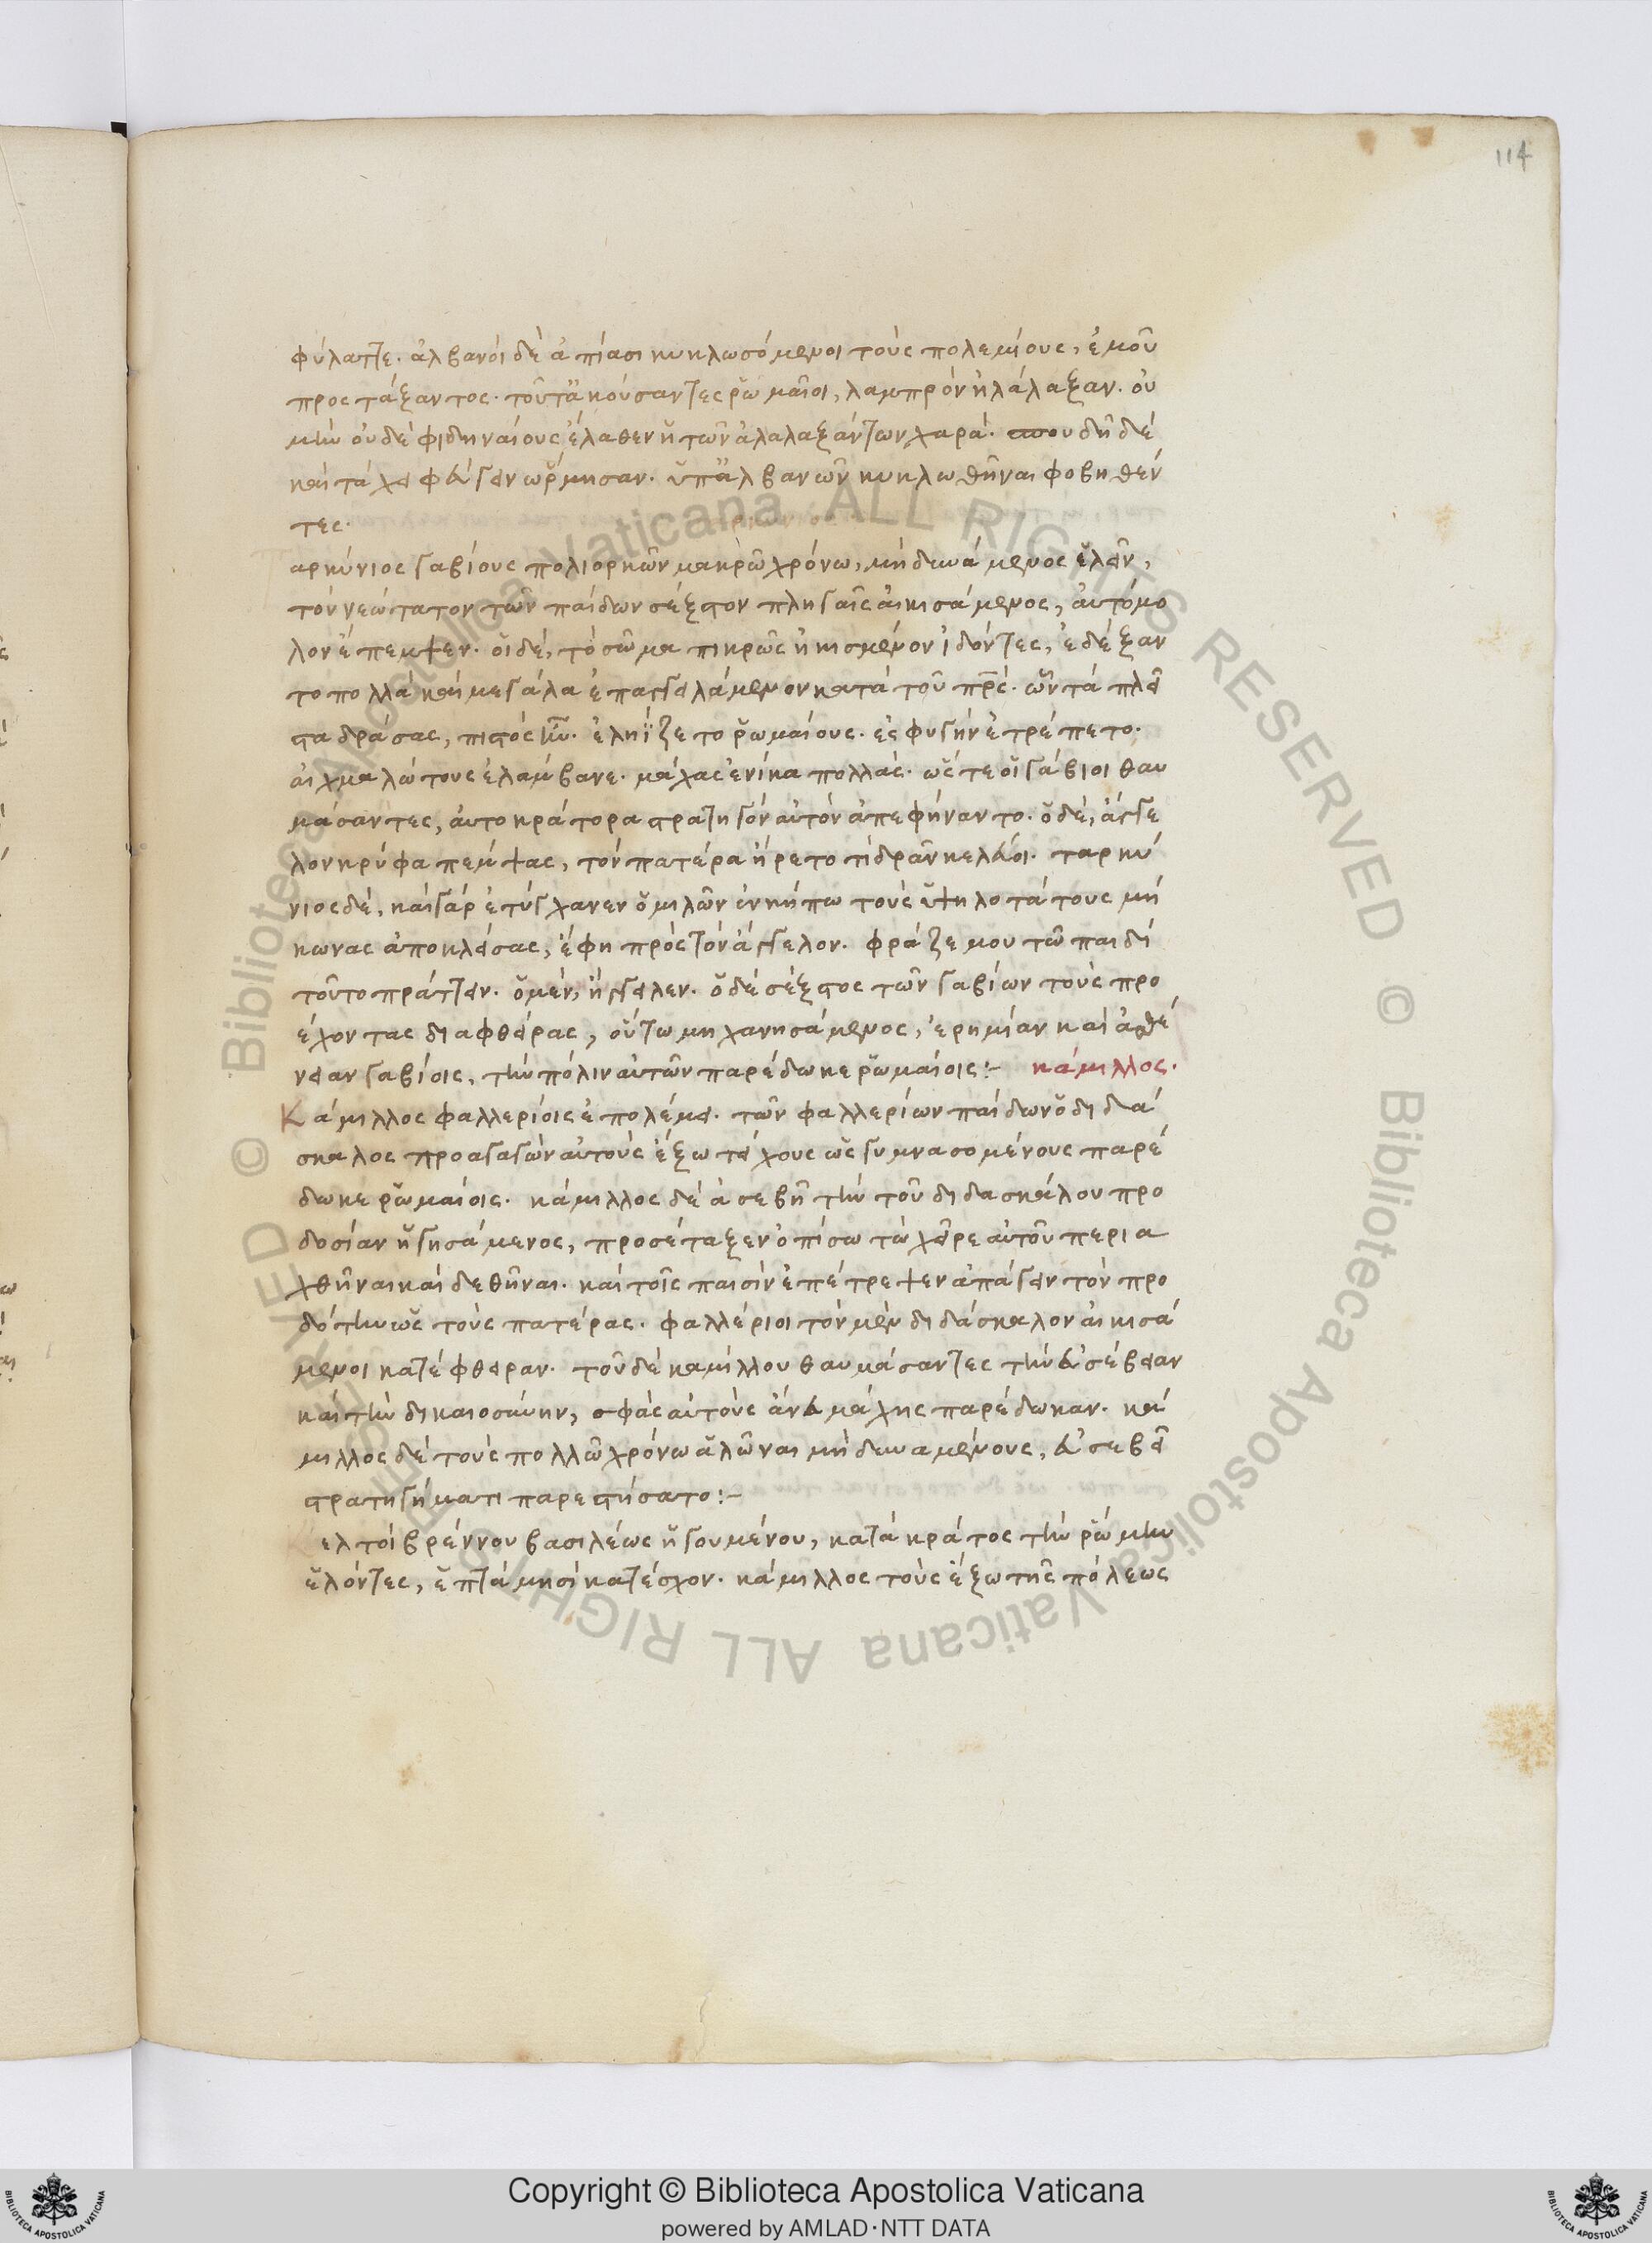 114
φύλαττε. ἀλβανοὶ δὲ ἀπίασι κυκλωσόμενοι τοὺς πολεμίους, ἐμοῦ
προστάξαντος. τοῦτ᾽ ἀκούσαντες ῥωμαῖοι, λαμπρὸν ἠλάλαξαν. οὐ
μὴν οὐδὲ φιδηναίους ἔλαθεν ἡ τῶν ἀλαλαξάντων χαρά. σπουδῆ δὲ
καὶ τάχει φεύγειν ὥρμησαν. ὑπ᾽ ἀλβανῶν κυκλωθῆναι φοβηθέν
τες.
αρκύνιος γαβίους πολιορκῶν μακρῶ χρόνω, μὴ δυνάμενος ἑλεῖν,
τὸν νεώτατον τῶν παίδων σέξστον πληγαῖς αἰκισάμενος, αὐτόμο
λον ἔπεμψεν. οἱ δὲ, τὸ σῶμα πικρῶς ἠκισμένον ἰδόντες, ἐδέξαν
το πολλὰ καὶ μεγάλα ἐπαγγειλάμενον κατὰ τοῦ πρς. ὧν τὰ πλεῖ
στα δράσας, πιστὸς ἦν. ἐληίζετο ῥωμαίους. ἐς φυγὴν ἐτρέπετο.
αἰχμαλώτους ἐλάμβανε. μάχας ἐνίκα πολλάς. ὥστε οἱ γάβιοι θαυ
μάσαντες, αὐτοκράτορα στρατηγὸν αὐτὸν ἀπεφήναντο. ὁ δὲ, ἄγγε
λον κρύφα πέμψας, τὸν πατέρα ἤρετο τί δρᾶν κελεύοι. ταρκύ
νιος δὲ, καὶ γὰρ ἐτύγχανεν ὁμιλῶν ἐν κήπω τοὺς ὑψηλοτάτους μή
κωνας ἀποκλείσας, ἔφη πρὸς τὸν ἄγγελον. φράζε μου τῶ παιδὶ
τοῦτο πράττειν. ὁ μὲν, ἤγγειλεν. ὁ δὲ σέξστος τῶν γαβίων τοὺς προ
έχοντας διαφθείρας, οὕτω μηχανησάμενος, ἐρημίαν καὶ ἀσθέ
νειαν γαβίοις, τὴν πόλιν αὐτῶν παρέδωκε ῥωμαίοις:- κάμιλλος.
Κάμιλλος φαλλερίοις ἐπολέμει. τῶν φαλλερίων παίδων ὁ διδά
σκαλος προαγαγὼν αὐτοὺς ἔξω τείχους ὡς γυμνασομένους παρέ
δωκε ῥωμαίοις. κάμιλλος δὲ ἀσεβῆ τὴν τοῦ διδασκάλου προ
δοσίαν ἡγησάμενος, προσέταξεν ὀπίσω τὼ χεῖρε αὐτοῦ περια
χθῆναι καὶ δεθῆναι. καὶ τοῖς παισὶν ἐπέτρεψεν ἀπάγειν τὸν προ
δότην ὡς τοὺς πατέρας. φαλλέριοι τὸν μὲν διδάσκαλον αἰκισά
μενοι κατέφθειραν. τοῦ δὲ καμίλλου θαυμάσαντες τὴν εὐσέβειαν
καὶ τὴν δικαιοσύνην, σφᾶς αὐτοὺς ἄνευ μάχης παρέδωκαν. κά
μιλλος δὲ τοὺς πολλῶ χρόνω ἁλῶναι μὴ δυναμένους, εὐσεβεῖ
στρατηγήματι παρεστήσατο:-
Κελτοὶ βρέννου βασιλέως ἡγουμένου, κατὰ κράτος τὴν ῥώμην
ἑλόντες, ἑπτὰ μησὶ κατέσχον. κάμιλλος τοὺς ἔξω τῆς πόλεως
© Biblioteca Apostolica Vaticana ALL RIGHTS RESERVED © Biblioteca Apostolica Vaticana ALL RIGHTS RESERVED
Copyright © Biblioteca Apostolica Vaticana
powered by AMLAD·NTT DATA
BIBLIOTECA APOSTOLICA VATICANA
BIBLIOTECA APOSTOLICA VATICANA